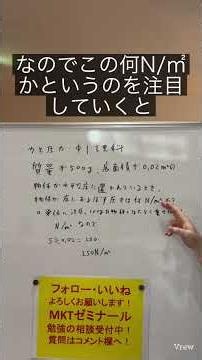 なのでこの何N/㎡
かというのを注目
していくと
力と圧力 中1理科
質量が500g、底面積が0.02㎡の
物体が水平な床に置かれているとき、
N/㎡ なので
5÷0.02=250
250N/㎡
フォロー・いいね
よろしくお願いします!
MKTゼミナール
勉強の相談受付中!
質問はコメント欄へ!
Vrew